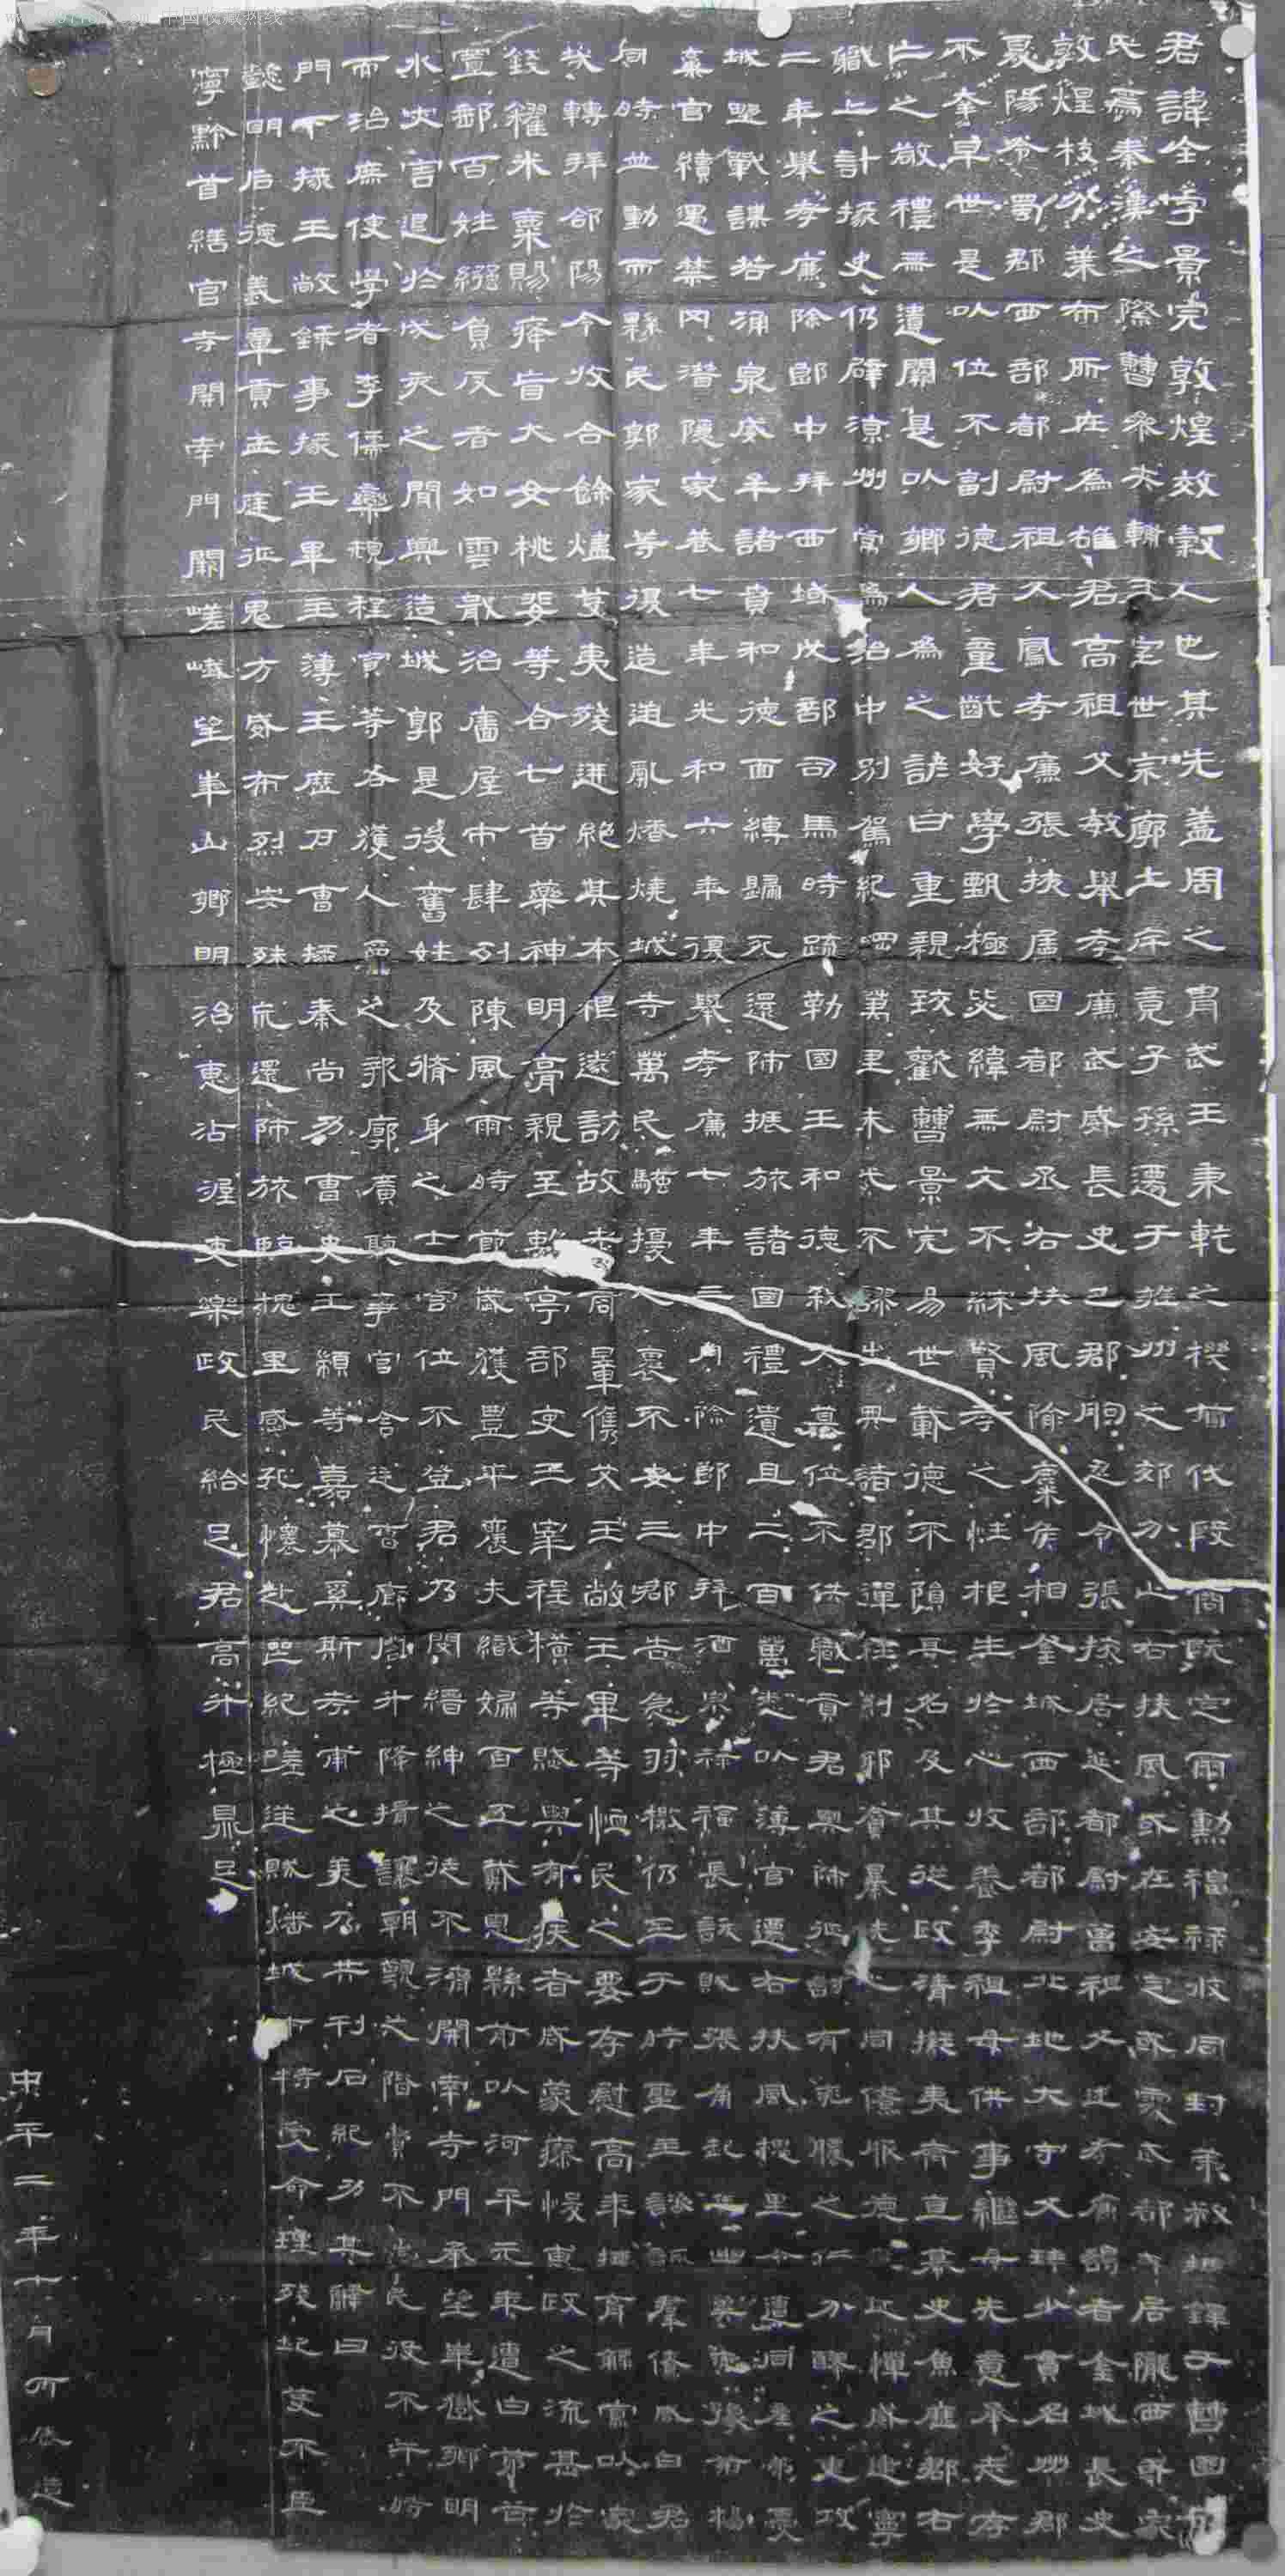 君諱全字景完敦煌效穀人也其先蓋周之胄武王秉乾之機翦伐殷商既定爾勳福祿攸同封弟叔振鐸于曹國因
氏焉秦漢之際曹參夾輔王室世宗廓土斥竟子孫遷于雍州之郊分止右扶風或在安定或處武都或居隴西或家
敦煌枝分葉布所在為雄君高祖父敏舉孝廉武威長史巴郡朐忍令張掖居延都尉曾祖父述孝廉謁者金城長史
夏陽令蜀郡西部都尉祖父鳳孝廉張掖屬國都尉丞右扶風隃麋侯相金城西部都尉北地大守父琫少貫名州郡
不幸早世是以位不副德君童齔好學甄極毖緯無文不綜賢孝之性根生於心收養季祖母供事繼母先意承志存
亡之敬禮無遺闕是以鄉人為之諺曰重親致歡曹景完易世載德不隕其名及其從政清擬夷齊直慕史魚歷郡右
職上計掾史仍辟涼州常為治中別駕紀綱萬里朱紫不謬出典諸郡彈枉糾邪貪暴洗心同僚服德遠近憚威建寧
二年舉孝廉除郎中拜西域戊部司馬時疏勒國王和德弒父篡位不供職貢君興師征討有兗膿之仁分醪之惠攻
城野戰謀若涌泉威牟諸賁和德面縛歸死還師振旅諸國禮遺且二百萬悉以薄官遷右扶風槐里令遭同產弟憂
棄官續遇禁冈潛隱家巷七年光和六年復舉孝廉七年三月除郎中拜酒泉祿福長訞賊張角起兵幽冀兗豫荊楊
同時並動而縣民郭家等復造逆亂燔燒城寺萬民騷擾人裹不安三郡告急羽檄仍至于時聖主諮諏群僚咸曰君
哉轉拜郃陽令收合餘燼芟夷殘迸絕其本根遂訪故老商暈儁艾王敞王畢等恤民之要存慰高年撫育鰥寡以家
錢糴米粟賜癃盲大女桃斐等合七首藥神明膏親至離亭部吏王宰程橫等賦與有疾者咸蒙瘳悛惠政之流甚於
置郵百姓繈負反者如雲戢治廧屋市肆列陳風雨時節歲獲豐年農夫織婦百工戴恩縣前以河平元年遭白茅谷
水灾害退於戊亥之間興造城郭是後舊姓及脩身之士官位不登君乃閔縉紳之徒不濟開南寺門承望華嶽鄉明
而治庶使學者李儒欒規程寅等各獲人爵之報廓廣聽事官舍廷曹廊閤升降揖讓朝覲之階費不出民役不干時
門下掾王敞錄事掾王畢主薄王歷户曹掾秦尚功曹史王顓等嘉慕奚斯考甫之美乃共刊石紀功其辭曰
懿明后德義章貢王庭征鬼方威布烈安殊荒還師旅臨槐里感孔懷赴喪紀嗟逆賊燔城市特受命理殘圮芟不臣
寧黔首繕官寺開南門闕嵯峨望華山鄉明治惠沾渥吏樂政民給足君高升極鼎足
中平二年十月丙辰造